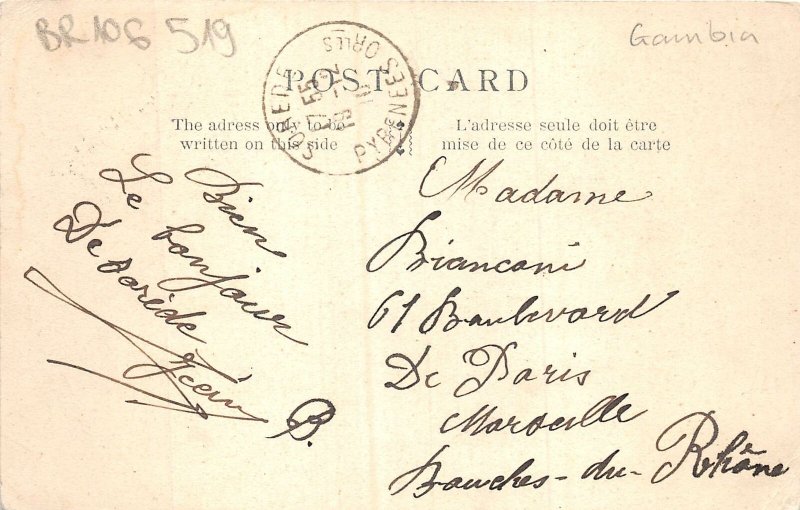 BR106 519
Gambia
POST CARD
SOREDE
17 55
19 -12
11
PYRENEES ORLES
The adress only to be
written on this side
L'adresse seule doit être
mise de ce côté de la carte
Bien
Le bonjour
De Sorède
Jean
B.
Madame
Bianconi
61 Boulevard
De Paris
Marseille
Bouches-du-Rhône